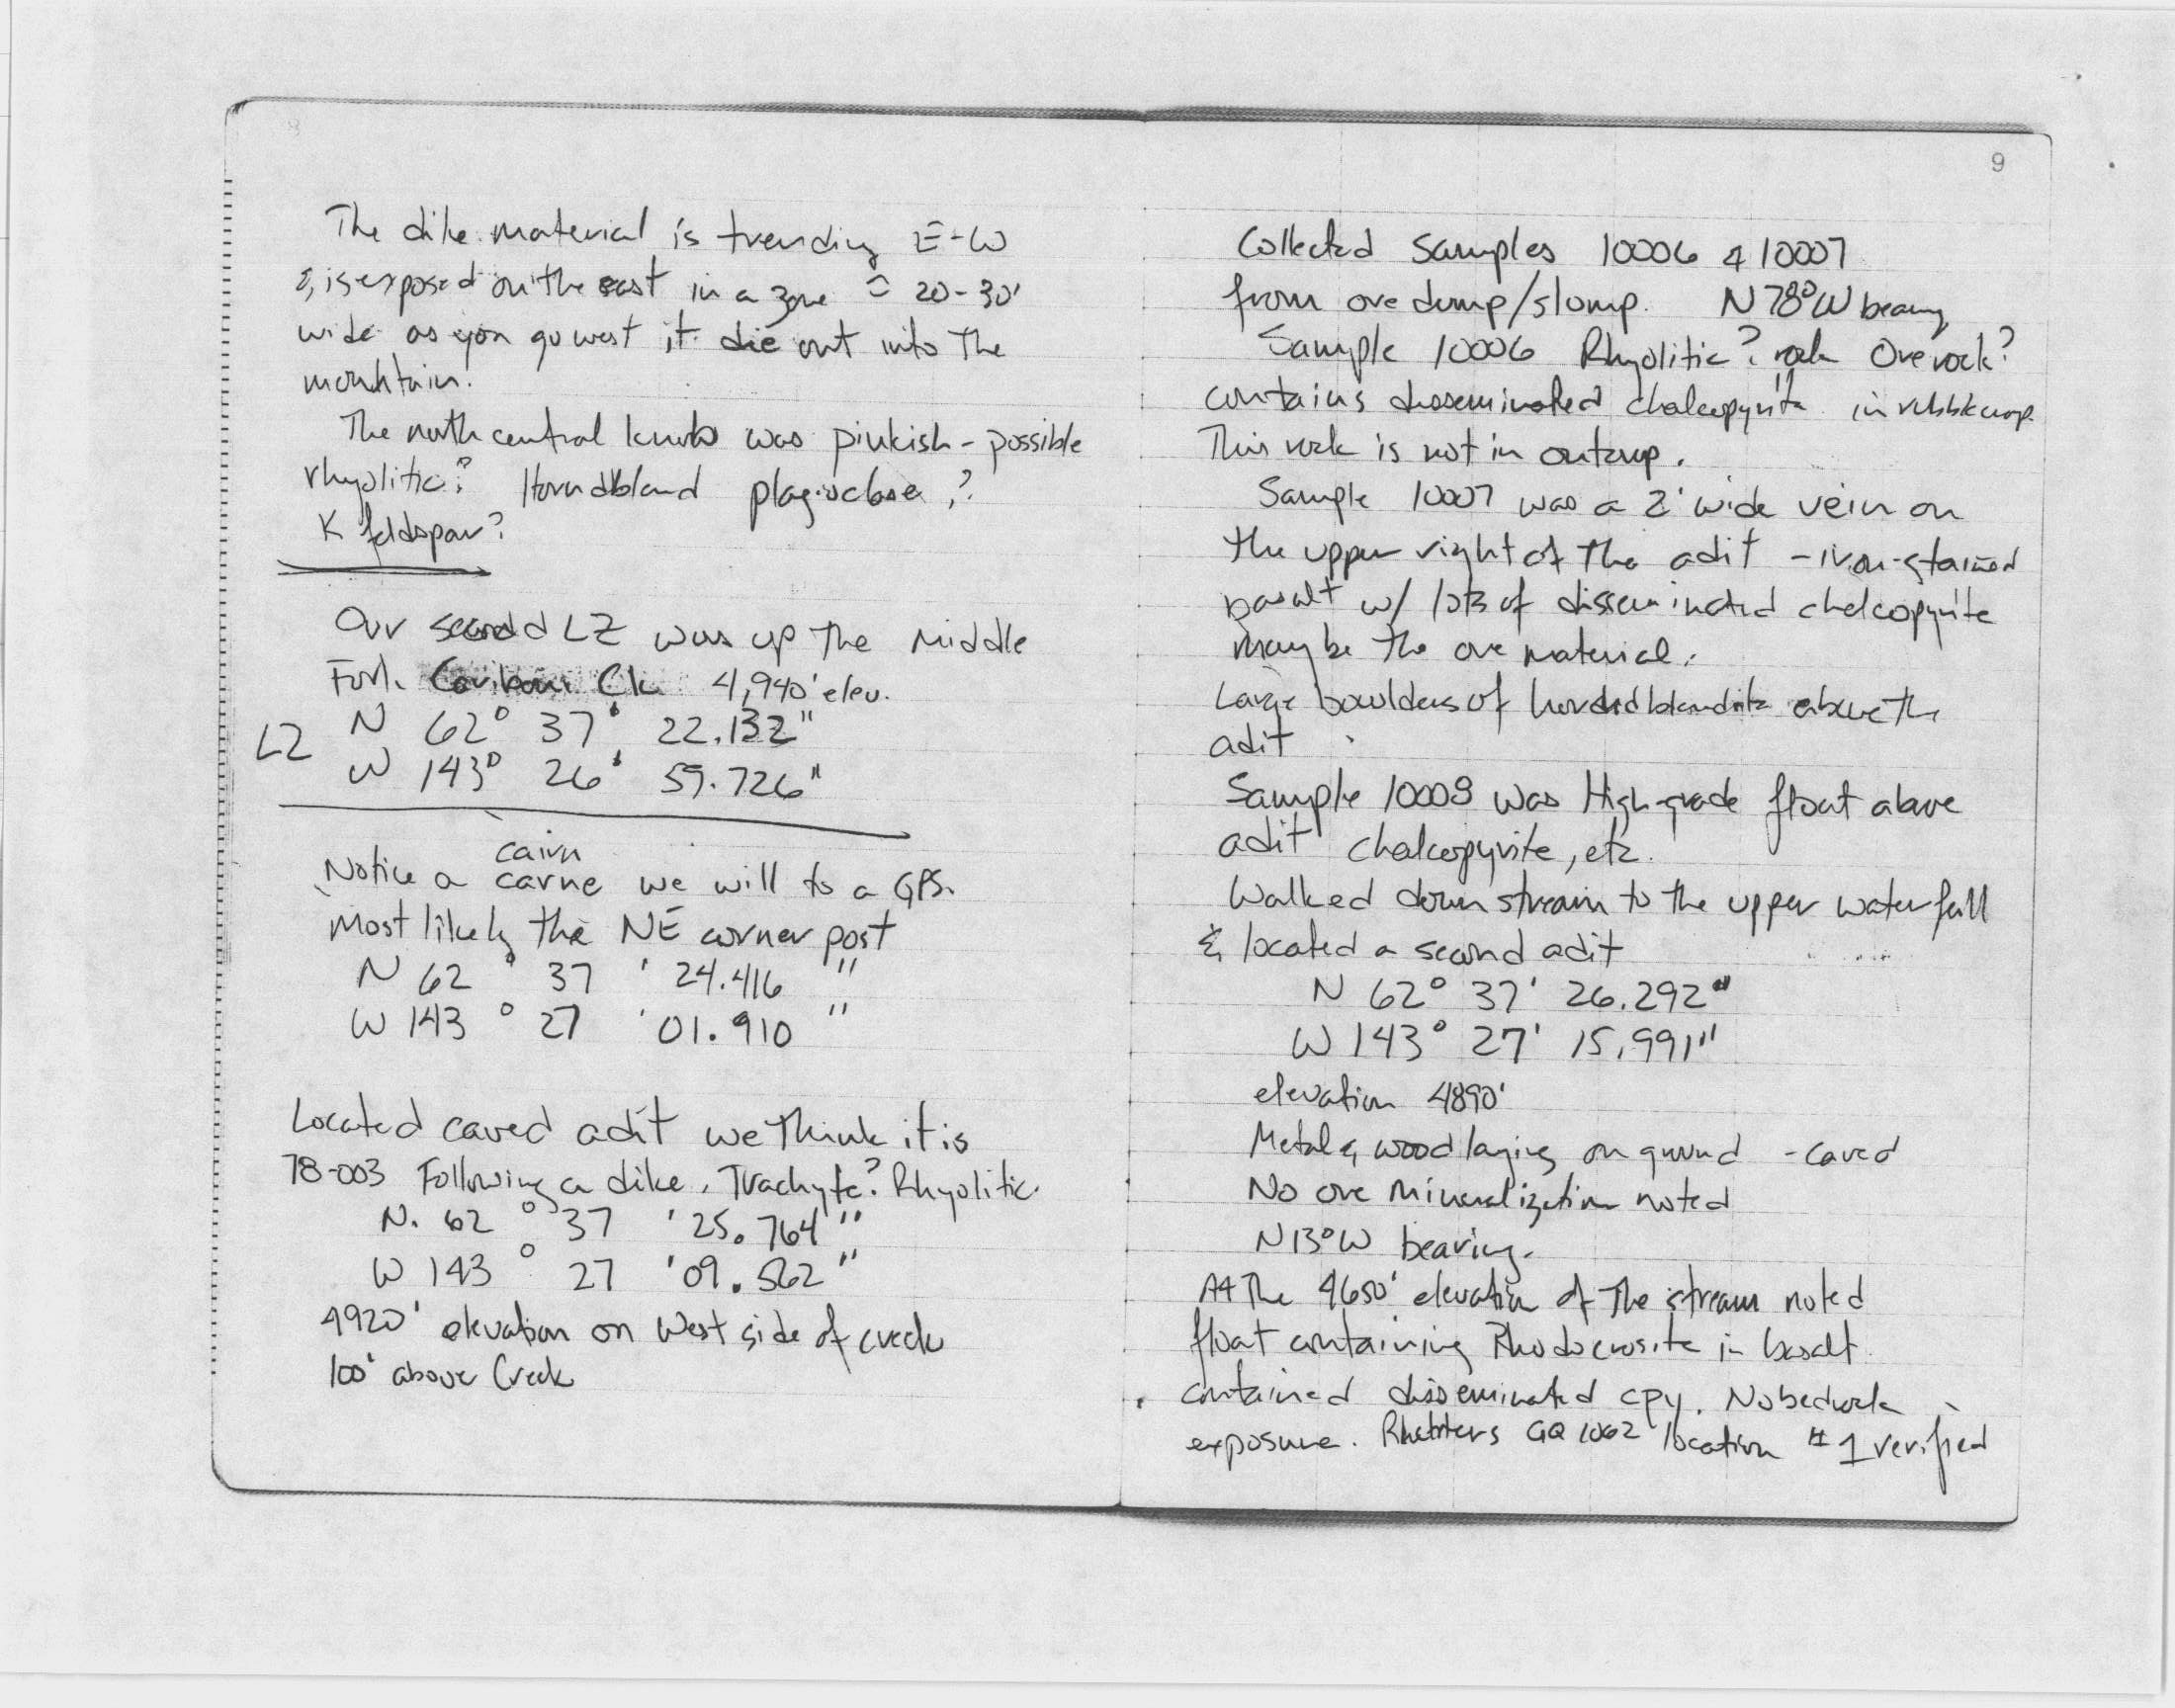 The dike material is trending E-W
& is exposed on the east in a zone ≈ 20-30'
wide as you go west it die out into the
mountain.
The north central knob was pinkish - possible
rhyolitic? Hornddbland plagioclase,?
K feldspar?
Our second LZ was up the Middle
Fork Caribou Ck 4,940' elev.
LZ N 62° 37' 22.132"
W 143° 26' 59.726"
cairn
Notice a carne we will to a GPS.
Most likely the NE corner post
N 62° 37' 24.416"
W 143° 27' 01.910"
Located caved adit we think it is
78-003 Following a dike. Trachyte? Rhyolitic.
N. 62° 37' 25.764"
W 143° 27' 09.562"
4920' elevation on West side of creek
100' above Creek
9
Collected Samples 10006 & 10007
from ore dump/slump. N78°W bearing
Sample 10006 Rhyolitic? rock Ore rock?
contains disseminated chalcopyrite in rubblecrop
This rock is not in outcrop.
Sample 10007 was a 2' wide vein on
the upper right of the adit - iron-stained
basalt w/ lots of disseminated chalcopyrite
may be the ore material.
Large boulders of above the
adit
Sample 10008 was High-grade float above
adit chalcopyrite, etc.
Walked down stream to the upper waterfall
& located a second adit
N 62° 37' 26.292"
W 143° 27' 15.991"
elevation 4890'
Metal & wood laying on ground - caved
No ore mineralization noted
N13°W bearing.
At the 4650' elevation of the stream noted
float containing Rhodocrosite in basalt
contained disseminated cpy. No bedrock
exposure. location #1 verified